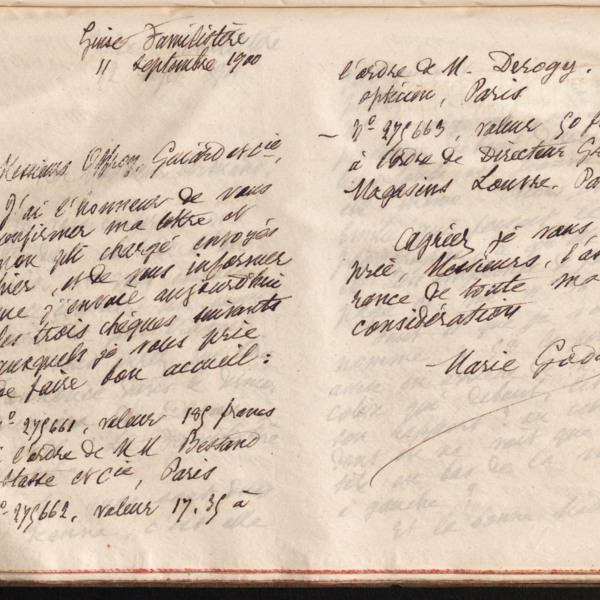 Guise Familistère
11 septembre 1900
Messieurs Offroy, Guiard et cie,
J'ai l'honneur de vous
confirmer ma lettre et
mon pli chargé envoyés
hier, et de vous informer
que j'envoie aujourd'hui
les trois chèques suivants
auxquels je vous prie
de faire bon accueil :
N° 275661, valeur 185 francs
à l'ordre de MM Bessand
Stasse et cie, Paris
N° 275662, valeur 17.35 à
l'ordre de M. Derogy.
opticien, Paris
— N° 275663, valeur 50 f
à l'ordre de Directeur G
Magasins Louvre. Pa
Agréer je vous
prie, Messieurs, l'a
rance de toute ma
considération
Marie God